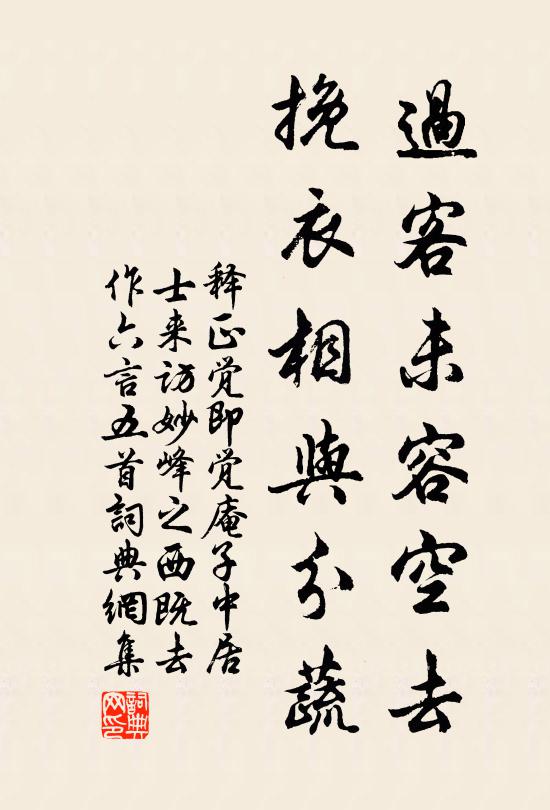 過客未容空去
挽衣相與分蔬
释正觉即觉庵子中居
士来访妙峰之西既去
作六言五首詞典網集
詞典
网印